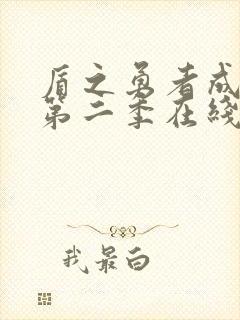 盾之勇者成
第二季在线
我最白